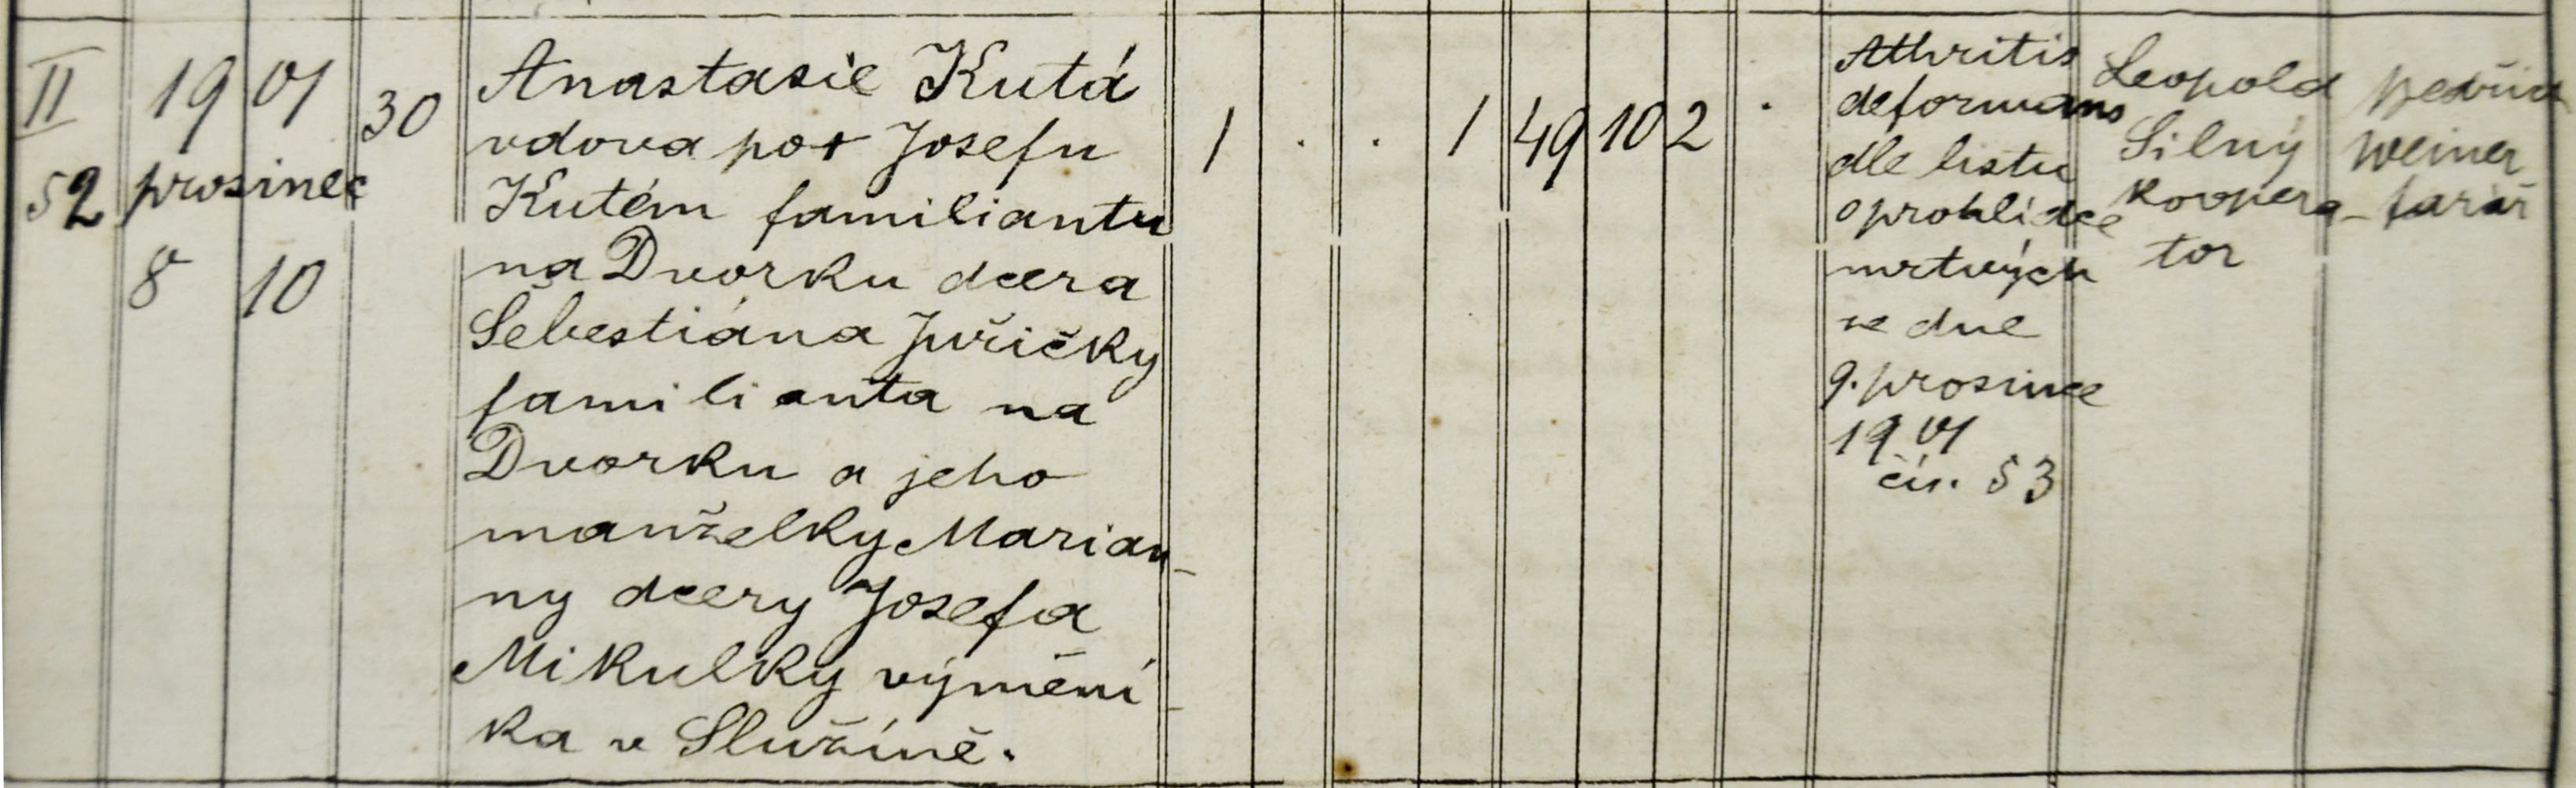 II
52
1901
prosinec
8 10
30
Anastasie Kutá
vdova po + Josefu
Kutém familiantu
na Dvorku dcera
Šebestiána Juřičky
familianta na
Dvorku a jeho
manželky Marian-
ny dcery Josefa
Mikulky výmění-
ka v Služíně.
1 . . 1 49 10 2 .
Athritis
deformans
dle listu
o prohlídce
mrtvých
ze dne
9. prosince
1901
čís. 53
Leopold
Silný
koopera-
tor
Weiner
farář